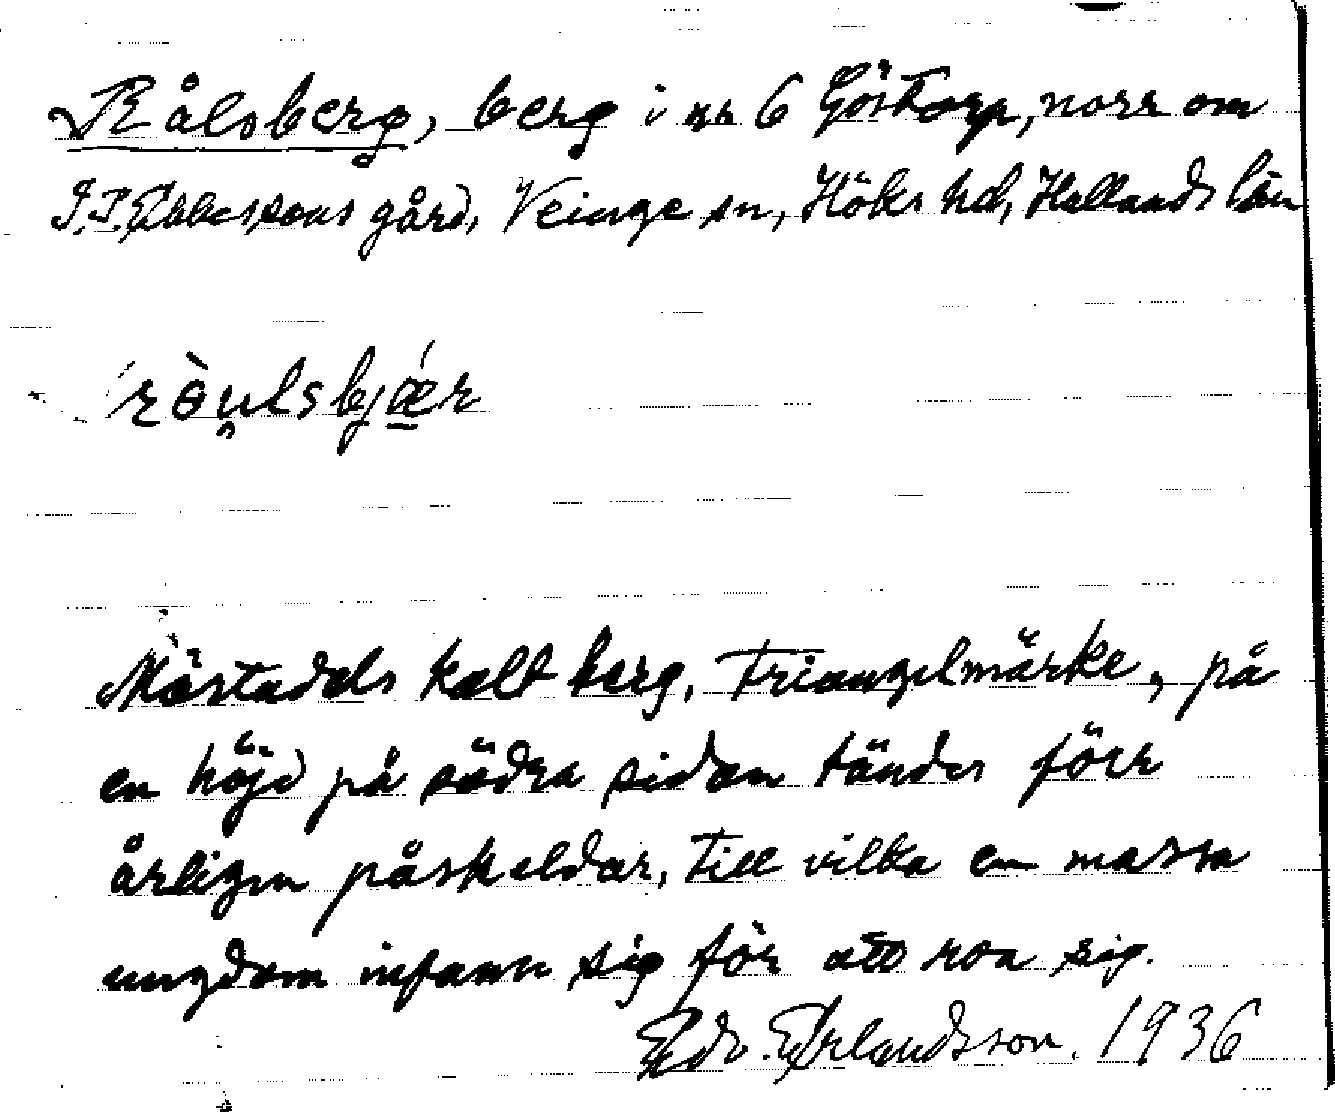 Rålsberg, berg i nr 6 Göstorp, norr om
J.P. Ebbessons gård, Veinge sn, Höks hd, Hallands län
Mästadels kalt berg, Triangelmärke, på
en höjd på södra sidan tändes förr
årligen påskeldar, till vilka en massa
ungdom infann sig för att roa sig.
Edv. Erlandsson. 1936